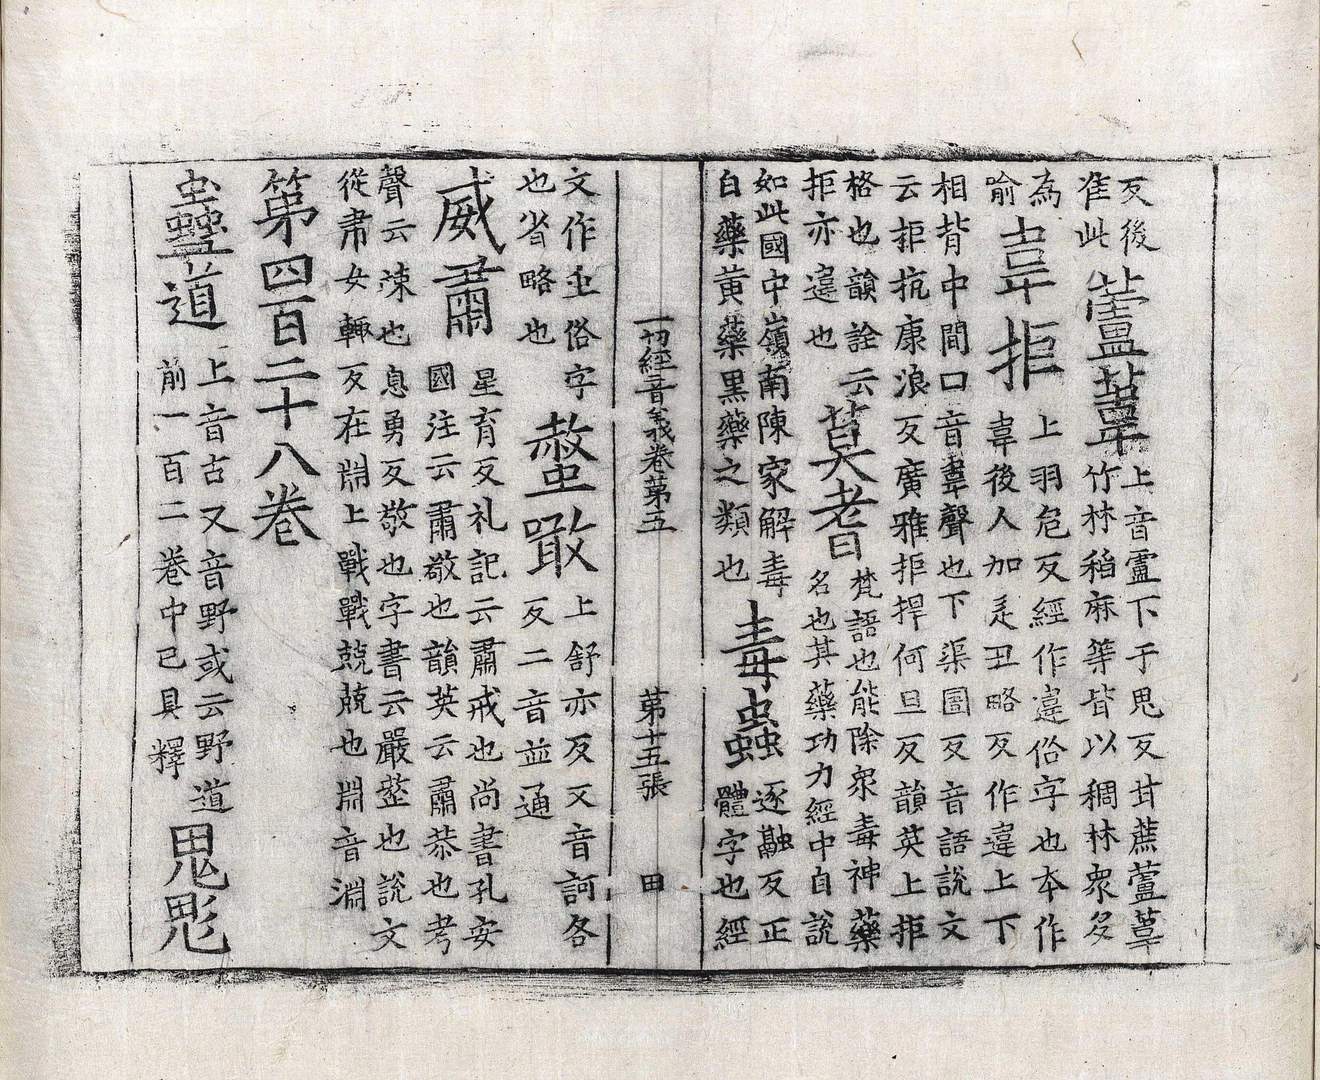 反後
准此
蘆葦
上音靈下于思反甘蔗蘆葦
竹林稻麻等皆以稠林衆多
為
喻
韋拒
上羽危反經作違俗字也本作
韋後人加辵丑略反作違上下
相背中間口音韋聲也下渠圖反音語說文
云拒抗康浪反廣雅拒捍何旦反韻英上拒
格也韻詮云
拒亦違也
莫耆
梵語也能除衆毒神藥
名也其藥功力經中自說
如此國中嶺南陳家解毒
白藥黃藥黑藥之類也
毒蟲
逐融反正
體字也經
一切經音義卷第五 第十五張 田
文作𧈧俗字
也省略也
螫噉
上舒亦反又音訶各
反二音並通
威肅
星育反礼記云肅戒也尚書孔安
國注云肅敬也韻英云肅恭也考
聲云悚也息勇反敬也字書云嚴整也說文
從肀女輙反在𣶒上戰戰兢兢也𣶒音淵
第四百二十八卷
蠱道
上音古又音野或云野道
前一百二卷中已具釋
鬼魅